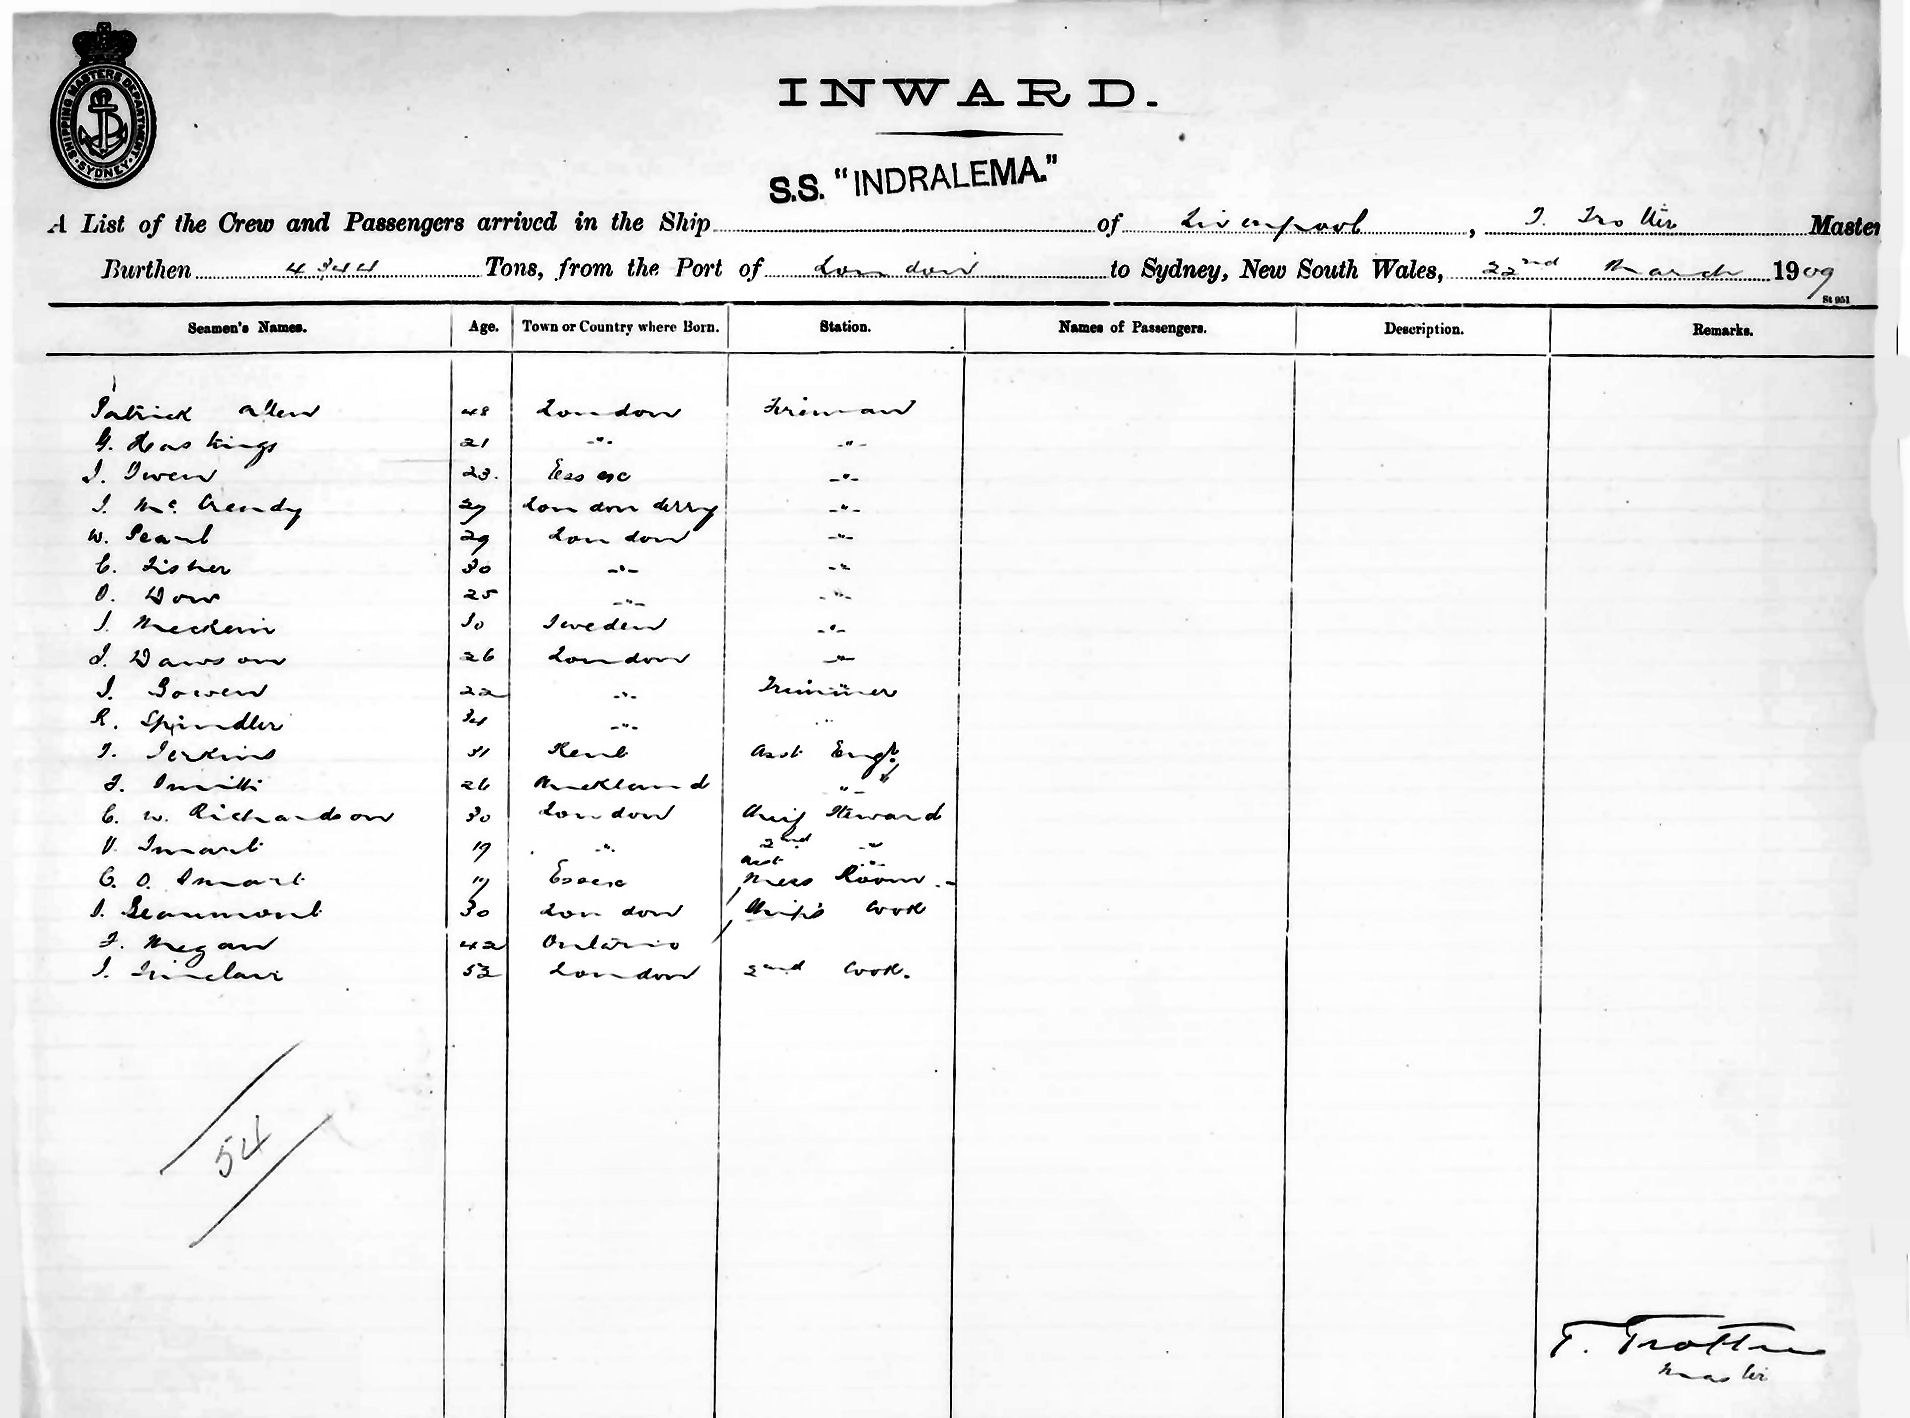 SHIPPING MASTERS DEPARTMENT. SYDNEY.
INWARD.
S.S. "INDRALEMA."
A List of the Crew and Passengers arrived in the Ship of Liverpool, T. Trotter Master
Burthen 4344 Tons, from the Port of London to Sydney, New South Wales, 22nd March 1909
St 951
Seamen's Names. Age. Town or Country where Born. Station. Names of Passengers. Description. Remarks.
Patrick Allen 48 London Fireman
G. Hastings 21 -"- -"-
J. Owen 23. Essex -"-
J. Mc Crendy 27 Londonderry -"-
W. Pearl 29 London -"-
C. Fisher 30 -"- -"-
O. Dow 25 -"- -"-
J. 30 Sweden -"-
J. Dawson 26 London -"-
J. Bowen 22 -"- Trimmer
R. Spindler 34 -"- "
T. Perkins 31 Kent Asst Engr.
F. Smith 26 Auckland -"-
C. W. Richardson 30 London Chief Steward
V. Smart 19 -"- 2nd -"-
C. O. Smart 17 Essex Asst Mess Room -"-
Beaumont 30 London Ship's Cook
F. Megan 42 Ontario
J. Sinclair 53 London 2nd Cook.
54
T. Trotter
Master